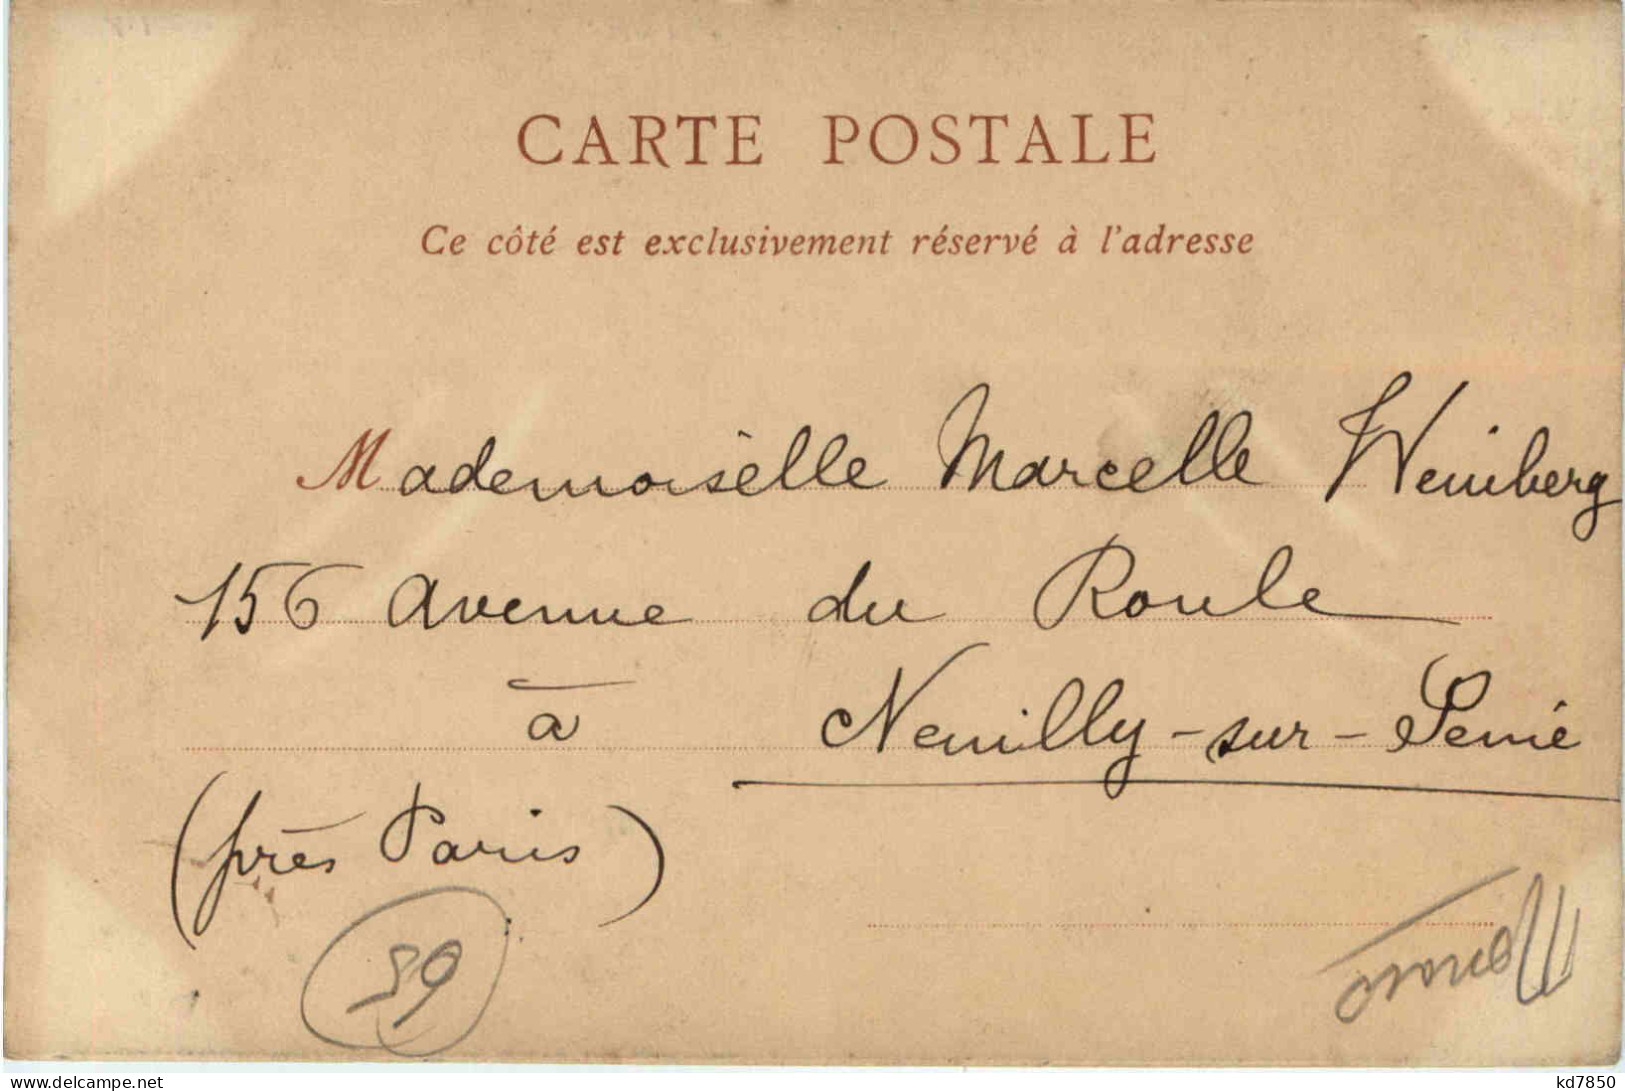 CARTE POSTALE
Ce côté est exclusivement réservé à l'adresse
Mademoiselle Marcelle Weinberg
156 Avenue du Roule
à Neuilly-sur-Seine
(près Paris)
59
www.delcampe.net
kd7850